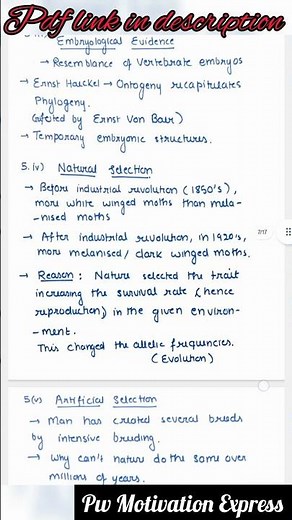 Pdf link in description
Embryological Evidence
→ Resemblance of Vertebrate embryos
→ Ernst Haeckel → Ontogeny recapitulates
Phylogeny.
by Ernst Von Baer)
→ Temporary embryonic structures.
5. (iv) Natural Selection
→ Before industrial revolution (1850's),
more white winged moths than mela-
-nised moths
→ After industrial revolution, in 1920's,
more melanised / dark winged moths.
7/17
→ Reason : Nature selected the trait
increasing the survival rate (hence
reproduction) in the given environ-
-ment.
This changed the allelic frequencies.
(Evolution)
5(v) Artificial Selection
→ Man has created several breeds
by intensive breeding.
→ Why can't nature do the same over
millions of years.
Pw Motivation Express